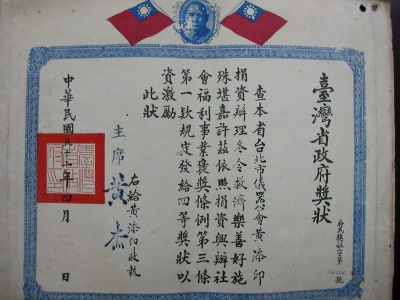 臺灣省政府獎狀
府民獎社字第
號
查本省台北市儀器公會黃添印
捐資辦理冬令救濟樂善好施
殊堪嘉許茲依照捐資興辦社
會福利事業褒獎條例第三條
第一款規定發給四等獎狀以
資激勵
此狀
右給黃添印收執
主席 黃杰
中華民國五十二年四月 日